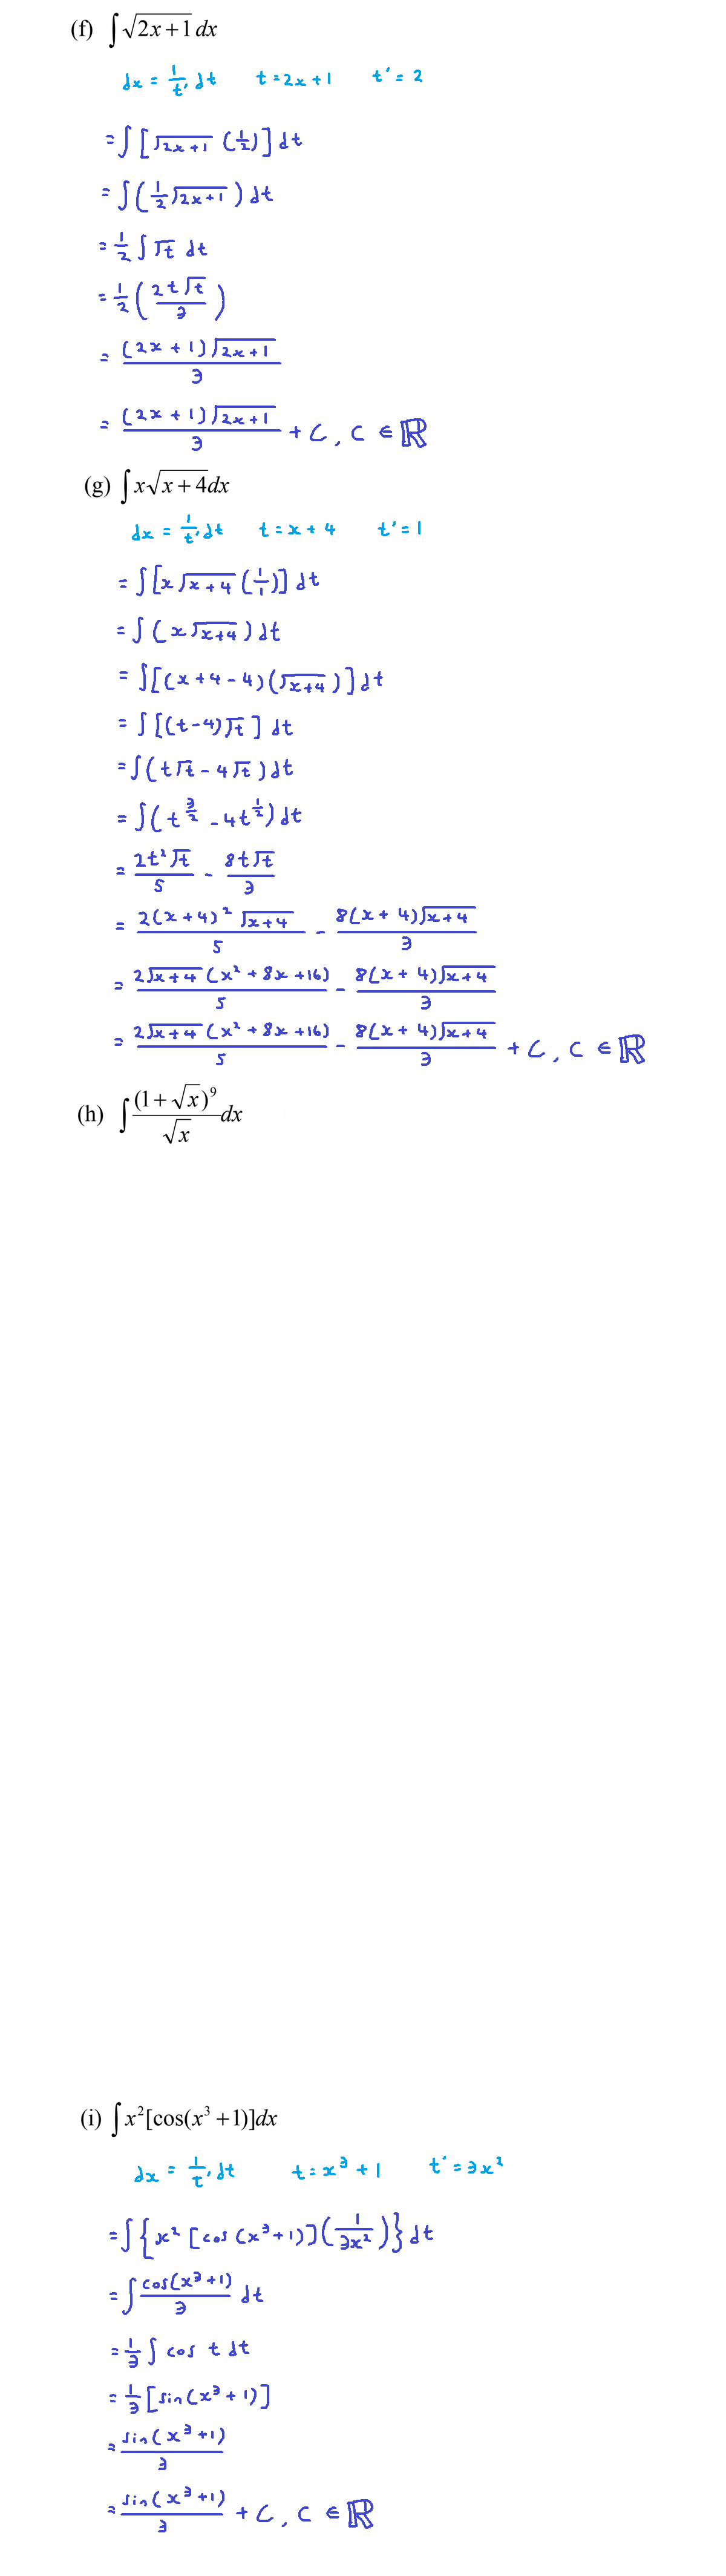 (f) ∫√(2x+1) dx
dx = 1/t' dt    t = 2x+1    t' = 2
= ∫[√(2x+1) (1/2)] dt
= ∫(1/2 √(2x+1)) dt
= 1/2 ∫ √t dt
= 1/2 (2t√t/3)
= (2x+1)√(2x+1)/3
= (2x+1)√(2x+1)/3 + C, C ∈ ℝ
(g) ∫x√(x+4)dx
dx = 1/t' dt    t = x+4    t' = 1
= ∫[x√(x+4) (1/1)] dt
= ∫(x√(x+4)) dt
= ∫[(x+4-4)(√(x+4))] dt
= ∫[(t-4)√t] dt
= ∫(t√t - 4√t) dt
= ∫(t^(3/2) - 4t^(1/2)) dt
= 2t²√t/5 - 8t√t/3
= 2(x+4)²√(x+4)/5 - 8(x+4)√(x+4)/3
= 2√(x+4)(x²+8x+16)/5 - 8(x+4)√(x+4)/3
= 2√(x+4)(x²+8x+16)/5 - 8(x+4)√(x+4)/3 + C, C ∈ ℝ
(h) ∫(1+√x)⁹/√x dx
(i) ∫x²[cos(x³+1)]dx
dx = 1/t' dt    t = x³+1    t' = 3x²
= ∫{x²[cos(x³+1)](1/3x²)} dt
= ∫cos(x³+1)/3 dt
= 1/3 ∫ cos t dt
= 1/3 [sin(x³+1)]
= sin(x³+1)/3
= sin(x³+1)/3 + C, C ∈ ℝ